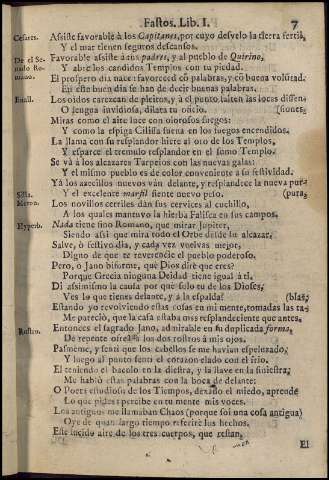 Fastos. Lib. I. 7
Cesares. Assiste favorable à los Capitanes, por cuyo desvelo la tierra fertil,
Y el mar tienen seguros descansos.
De el Se- Favorable assiste à tus padres, y al pueblo de Quirino,
nado Ro- Y abre los candidos Templos con tu piedad.
mano. El prospero dia nace: favoreced cõ palabras, y cõ buena volũtad.
En este buen dia se han de decir buenas palabras.
Enall. Los oidos carezcan de pleitos, y à el punto falten las locas dissen-
O lengua invidiosa, dilata tu oficio. (siones:
Miras como el aire luce con olorosos fuegos:
Y como la espiga Cilissa suena en los fuegos encendidos.
La llama con su resplandor hiere al oro de los Templos,
Y esparce el tremulo resplandor en el sumo Templo.
Se và à los alcazares Tarpeios con las nuevas galas:
Y el mismo pueblo es de color conveniente à su festividad.
Yà los azecillos nuevos vàn delante, y resplandece la nueva pur-
Y el excelente marfil siente nuevo peso. (pura,
Los novillos cerriles dàn sus cervices al cuchillo,
A los quales mantuvo la hierba Falisca en sus campos.
Hyperb. Nada tiene sino Romano, que mirar Jupiter,
Siendo assi que mira todo el Orbe desde su alcazar.
Salve, ò festivo dia, y cada vez vuelvas mejor,
Digno de que te reverencie el pueblo poderoso.
Pero, ò Jano biforme, què Dios dirè que eres?
Porque Grecia ninguna Deidad tiene igual à tì.
Di assimismo la causa por què solo tu de los Dioses,
Ves lo que tienes delante, y à la espalda? (blas,
Estando yo revolviendo estas cosas en mi mente, tomadas las ta-
Me pareciò, que la casa estaba mas resplandeciente que antes.
Entonces el sagrado Jano, admirable en su duplicada forma,
Rostro. De repente los dos rostros à mis ojos.
Pasmème, y sentì que los cabellos se me havian espeluzado,
Y luego al punto sentì el corazon elado con el frio.
El teniendo el baculo en la diestra, y la llave en la siniestra,
Me hablò estas palabras con la boca de delante:
O Poeta estudioso de los Tiempos, dexado el miedo, aprende
Lo que pides: percibe en tu mente mis voces.
Los antiguos me llamaban Chaos (porque soi una cosa antigua)
Oye de quan largo tiempo referirè los hechos.
Este lucido aire de los tres cuerpos, que restan,
El